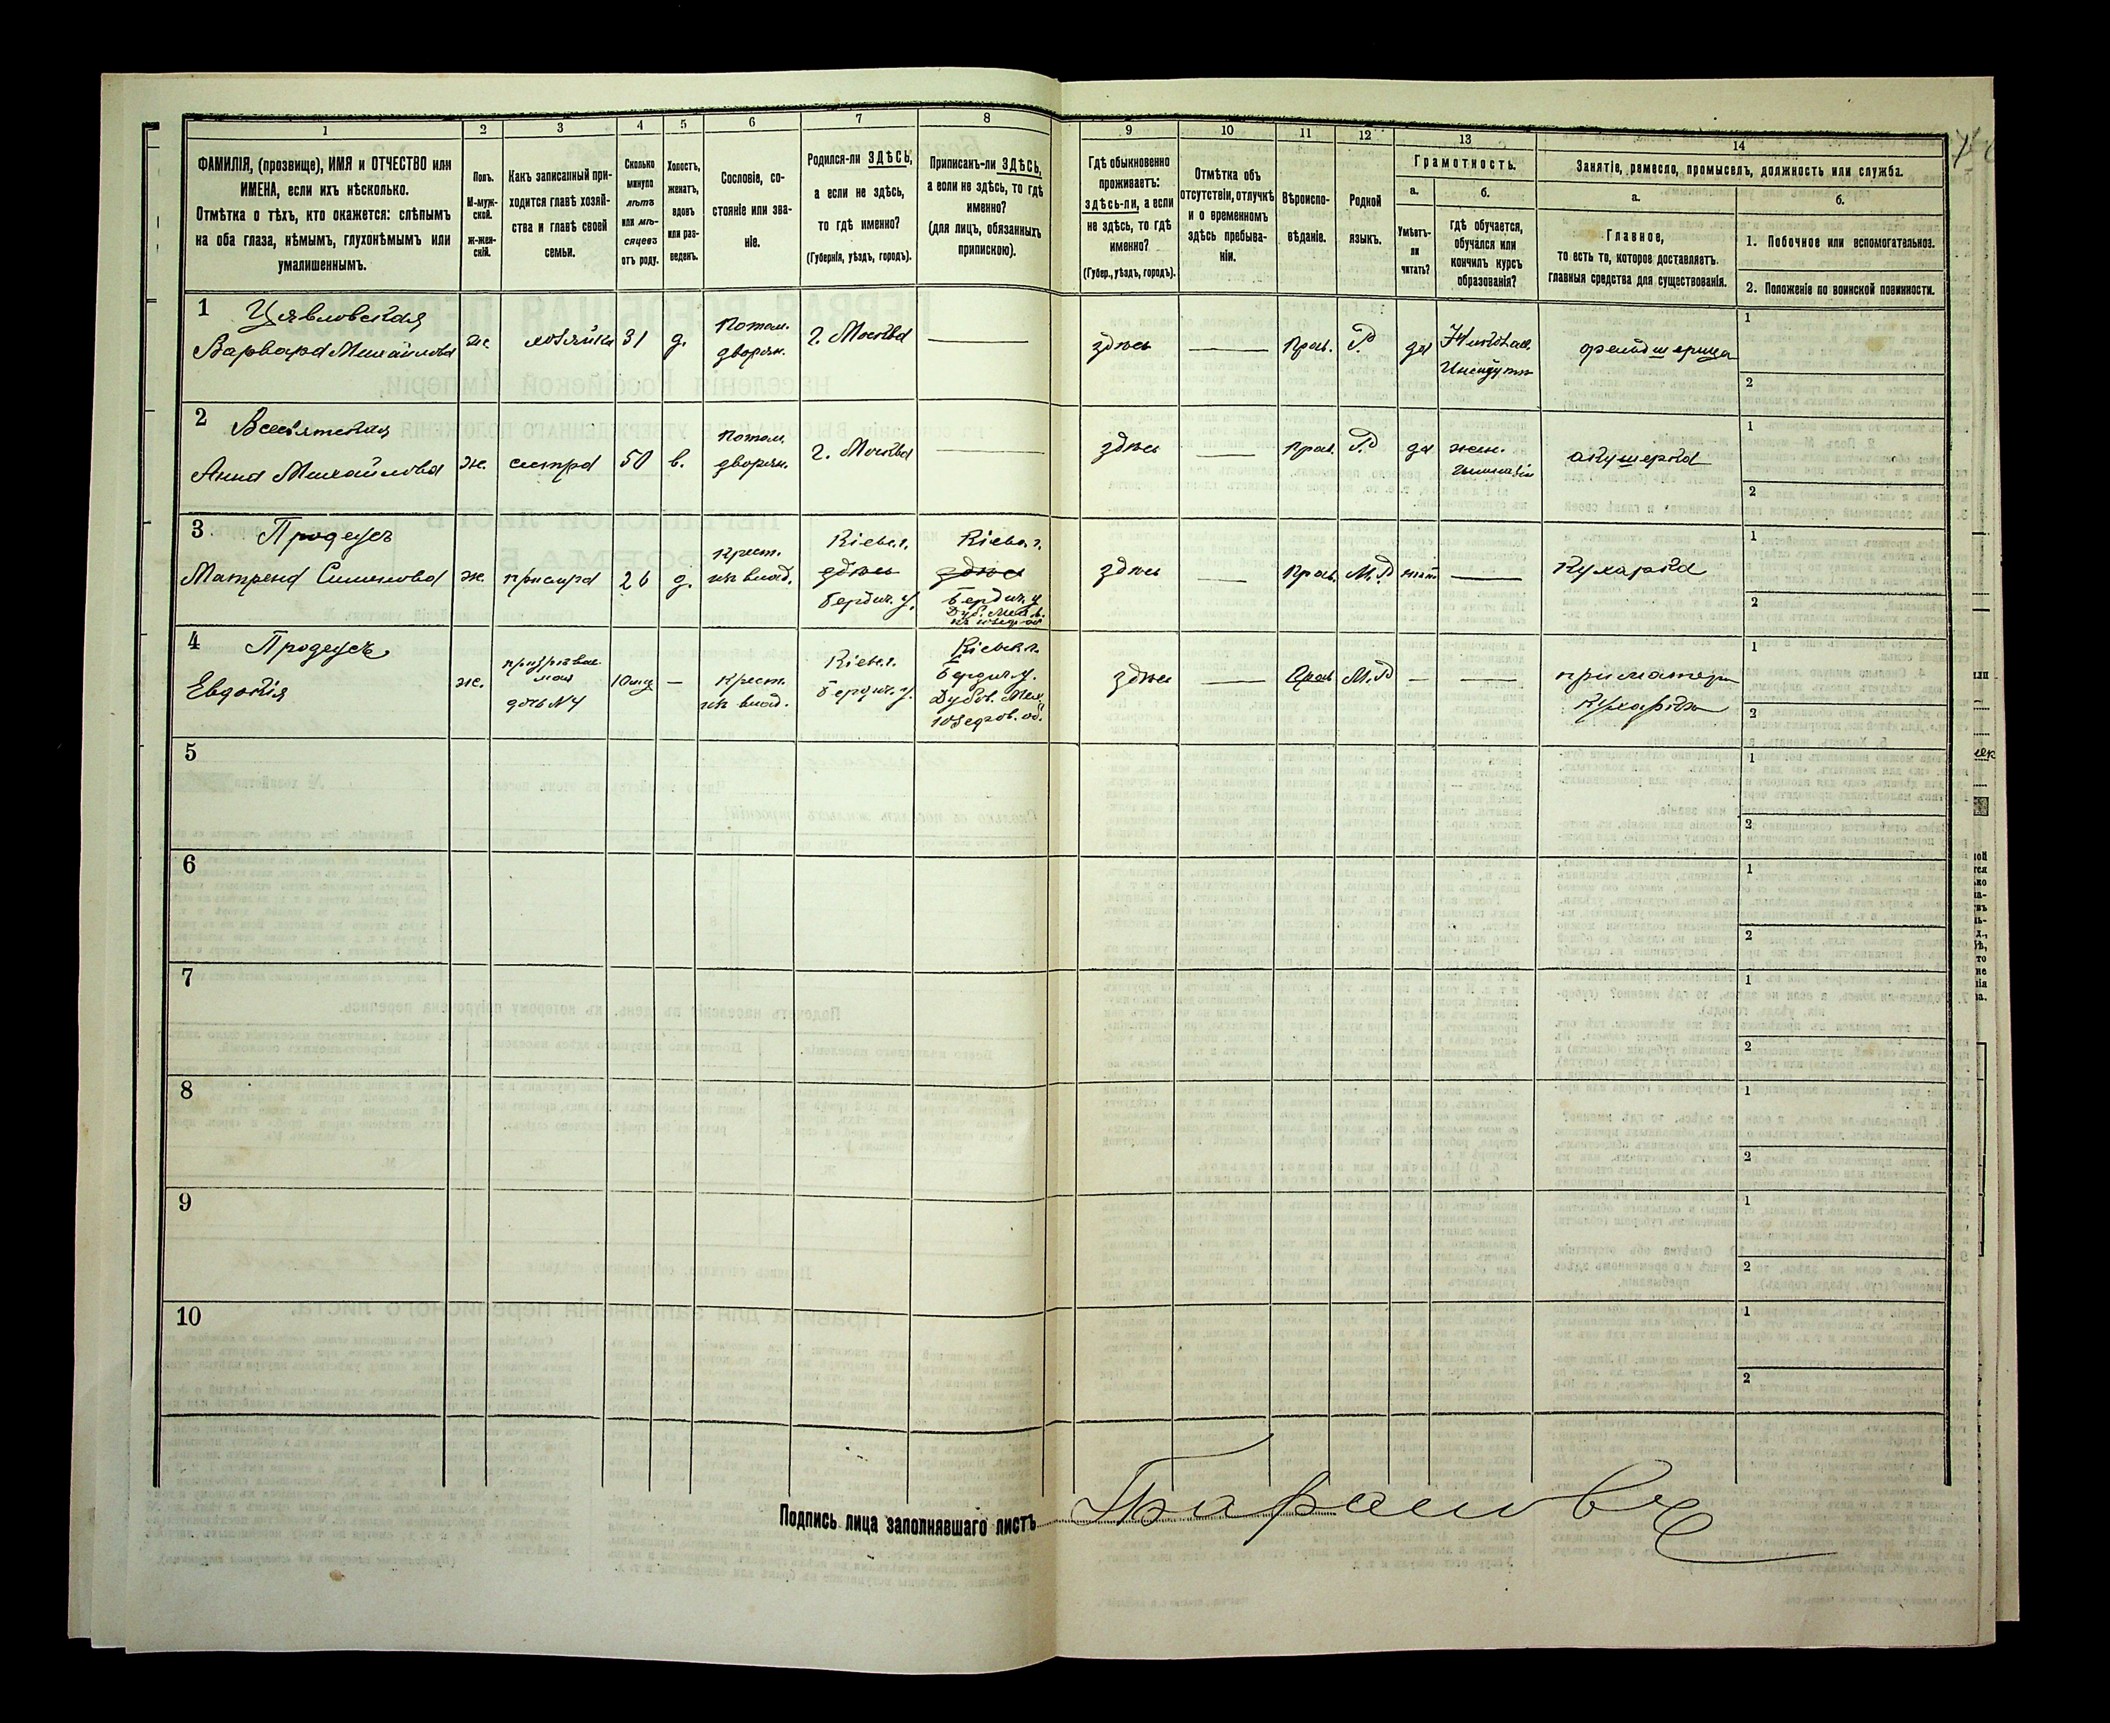 1 2 3 4 5 6 7 8 9 10 11 12 13 14
ФАМИЛІЯ, (прозвище), ИМЯ и ОТЧЕСТВО или
ИМЕНА, если ихъ нѣсколько.
Отмѣтка о тѣхъ, кто окажется: слѣпымъ
на оба глаза, нѣмымъ, глухонѣмымъ или
умалишеннымъ.
Полъ.
М-муж-
ской.
ж-жен-
скій.
Какъ записанный при-
ходится главѣ хозяй-
ства и главѣ своей
семьи.
Сколько
минуло
лѣтъ
или мѣ-
сяцевъ
отъ роду.
Холостъ,
женатъ,
вдовъ
или раз-
веденъ.
Сословіе, со-
стояніе или зва-
ніе.
Родился-ли ЗДѢСЬ,
а если не здѣсь,
то гдѣ именно?
(Губернія, уѣздъ, городъ).
Приписанъ-ли ЗДѢСЬ,
а если не здѣсь, то гдѣ
именно?
(для лицъ, обязанныхъ
припискою).
Гдѣ обыкновенно
проживаетъ:
здѣсь-ли, а если
не здѣсь, то гдѣ
именно?
(Губер., уѣздъ, городъ).
Отмѣтка объ
отсутствіи, отлучкѣ
и о временномъ
здѣсь пребыва-
ніи.
Вѣроиспо-
вѣданіе.
Родной
языкъ.
Грамотность.
а. б.
Умѣетъ-
ли
читать?
Гдѣ обучается,
обучался или
кончилъ курсъ
образованія?
Занятіе, ремесло, промыселъ, должность или служба.
а.
Главное,
то есть то, которое доставляетъ
главныя средства для существованія.
б.
1. Побочное или вспомогательное.
2. Положеніе по воинской повинности.
1 Цявловская
Варвара Михайлова ж хозяйка 31 д. Потом.
дворян. г. Москва здѣсь Прав. Р. да
Институтъ фельдшерица 1
2
2 Всесвятская
Анна Михайлова ж. сестра 50 в. Потом.
дворян. г. Москва здѣсь Прав. Р да жен.
гимназія акушерка 1
2
3 Продеусъ
Матрена Симонова ж. присуга 26 д. Крест.
изъ влад. Кіевс. г.
здѣсь
Бердич. у. Кіевс. г.
здѣсь
Бердич. у.
здѣсь Прав. М.Р Кухарка 1
2
4 Продеусъ
Евдокія ж. дочь №4 10 мѣ — Крест.
изъ влад. Кіевс. г.
Бердич. у. Кіевск. г.
Бердич. у.
здѣсь Прав М.Р — при матери
кухаркѣ 1
2
5 1
2
6 1
2
7 1
2
8 1
2
9 1
2
10 1
2
Подпись лица заполнявшаго листъ